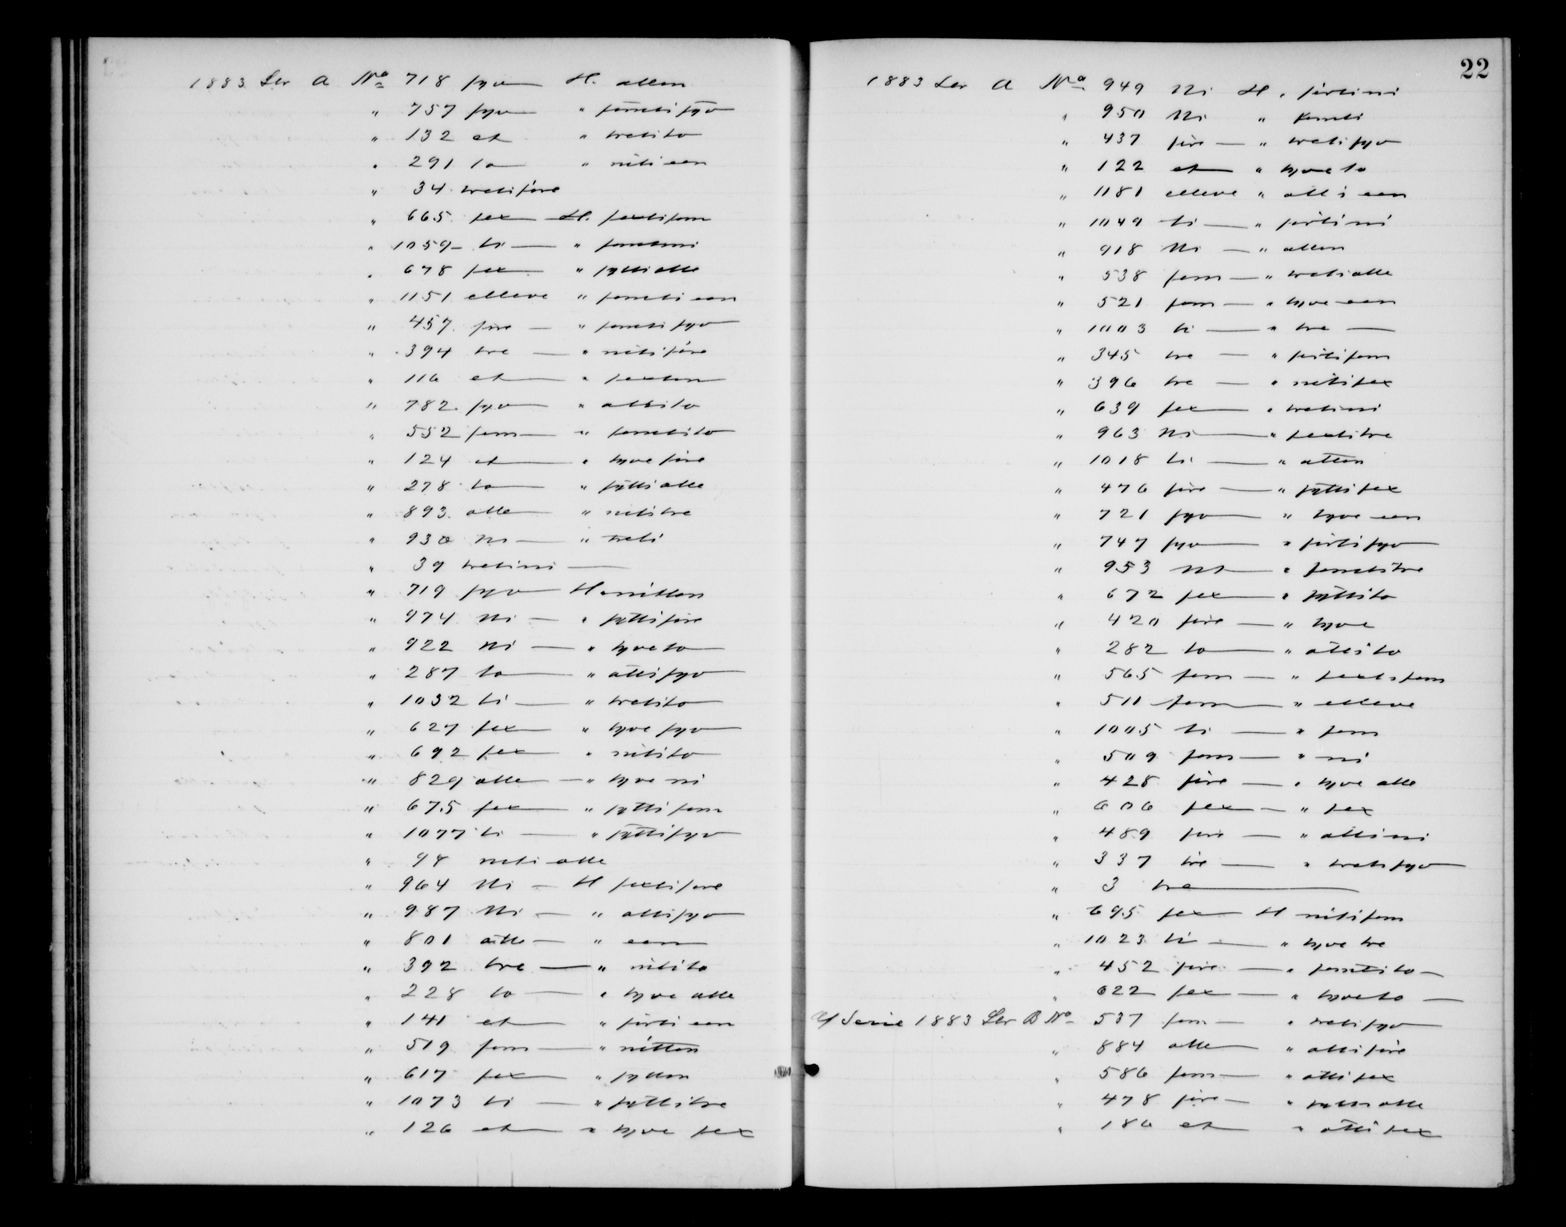 1883 Ltr A No 718 syv H. atten
" 757 syv " femtisyv
" 132 et " tretito
" 291 to " nitieen
" 34 tretifire
" 665 sex H. sextifem
" 1059 ti " femtini
" 678 sex " syttiotte
" 1151 elleve " femtieen
" 457 fire " femtisyv
" 394 tre " nitifire
" 116 et " sexten
" 782 syv " ottito
" 552 fem " femtito
" 124 et " tyvefire
" 278 to " syttiotte
" 893 otte " nititre
" 930 ni " treti
" 39 tretini
" 719 syv H. nitten
" 974 Ni " syttifire
" 922 Ni " tyveto
" 287 to " ottisyv
" 1032 ti " tretito
" 627 sex " tyvesyv
" 692 sex " nitito
" 829 otte " tyveni
" 675 sex " syttifem
" 1077 ti " syttisyv
" 98 nitiotte
" 964 Ni H sextifire
" 987 Ni " ottisyv
" 801 otte " een
" 392 tre " nitito
" 228 to " tyveotte
" 141 et " førtieen
" 519 fem " nitten
" 617 sex " sytten
" 1073 ti " syttitre
" 126 et " tyvesex
22
1883 Ltr A No 949 Ni H. førtini
" 950 Ni " femti
" 437 fire " tretisyv
" 122 et " tyveto
" 1181 elleve " ottieen
" 1049 ti " førtini
" 918 Ni " atten
" 538 fem " tretiotte
" 521 fem " tyveeen
" 1003 ti " tre
" 345 tre " førtifem
" 396 tre " nitisex
" 639 sex " tretini
" 963 Ni " sextitre
" 1018 ti " atten
" 476 fire " syttisex
" 721 syv " tyveeen
" 747 syv " førtisyv
" 953 Ni " femtitre
" 672 sex " syttito
" 420 fire " tyve
" 282 to " ottito
" 565 fem " sextifem
" 511 fem " elleve
" 1005 ti " fem
" 509 fem " ni
" 428 fire " tyveotte
" 606 sex " sex
" 489 fire " ottini
" 337 tre " tretisyv
" 3 tre
" 695 sex H nitifem
" 1023 ti " tyvetre
" 452 fire " femtito
" 622 sex " tyveto
Af Serie 1883 Ltr B No 537 fem " tretisyv
" 884 otte " ottifire
" 586 fem " ottisex
" 478 fire " syttiotte
" 186 et " ottisex